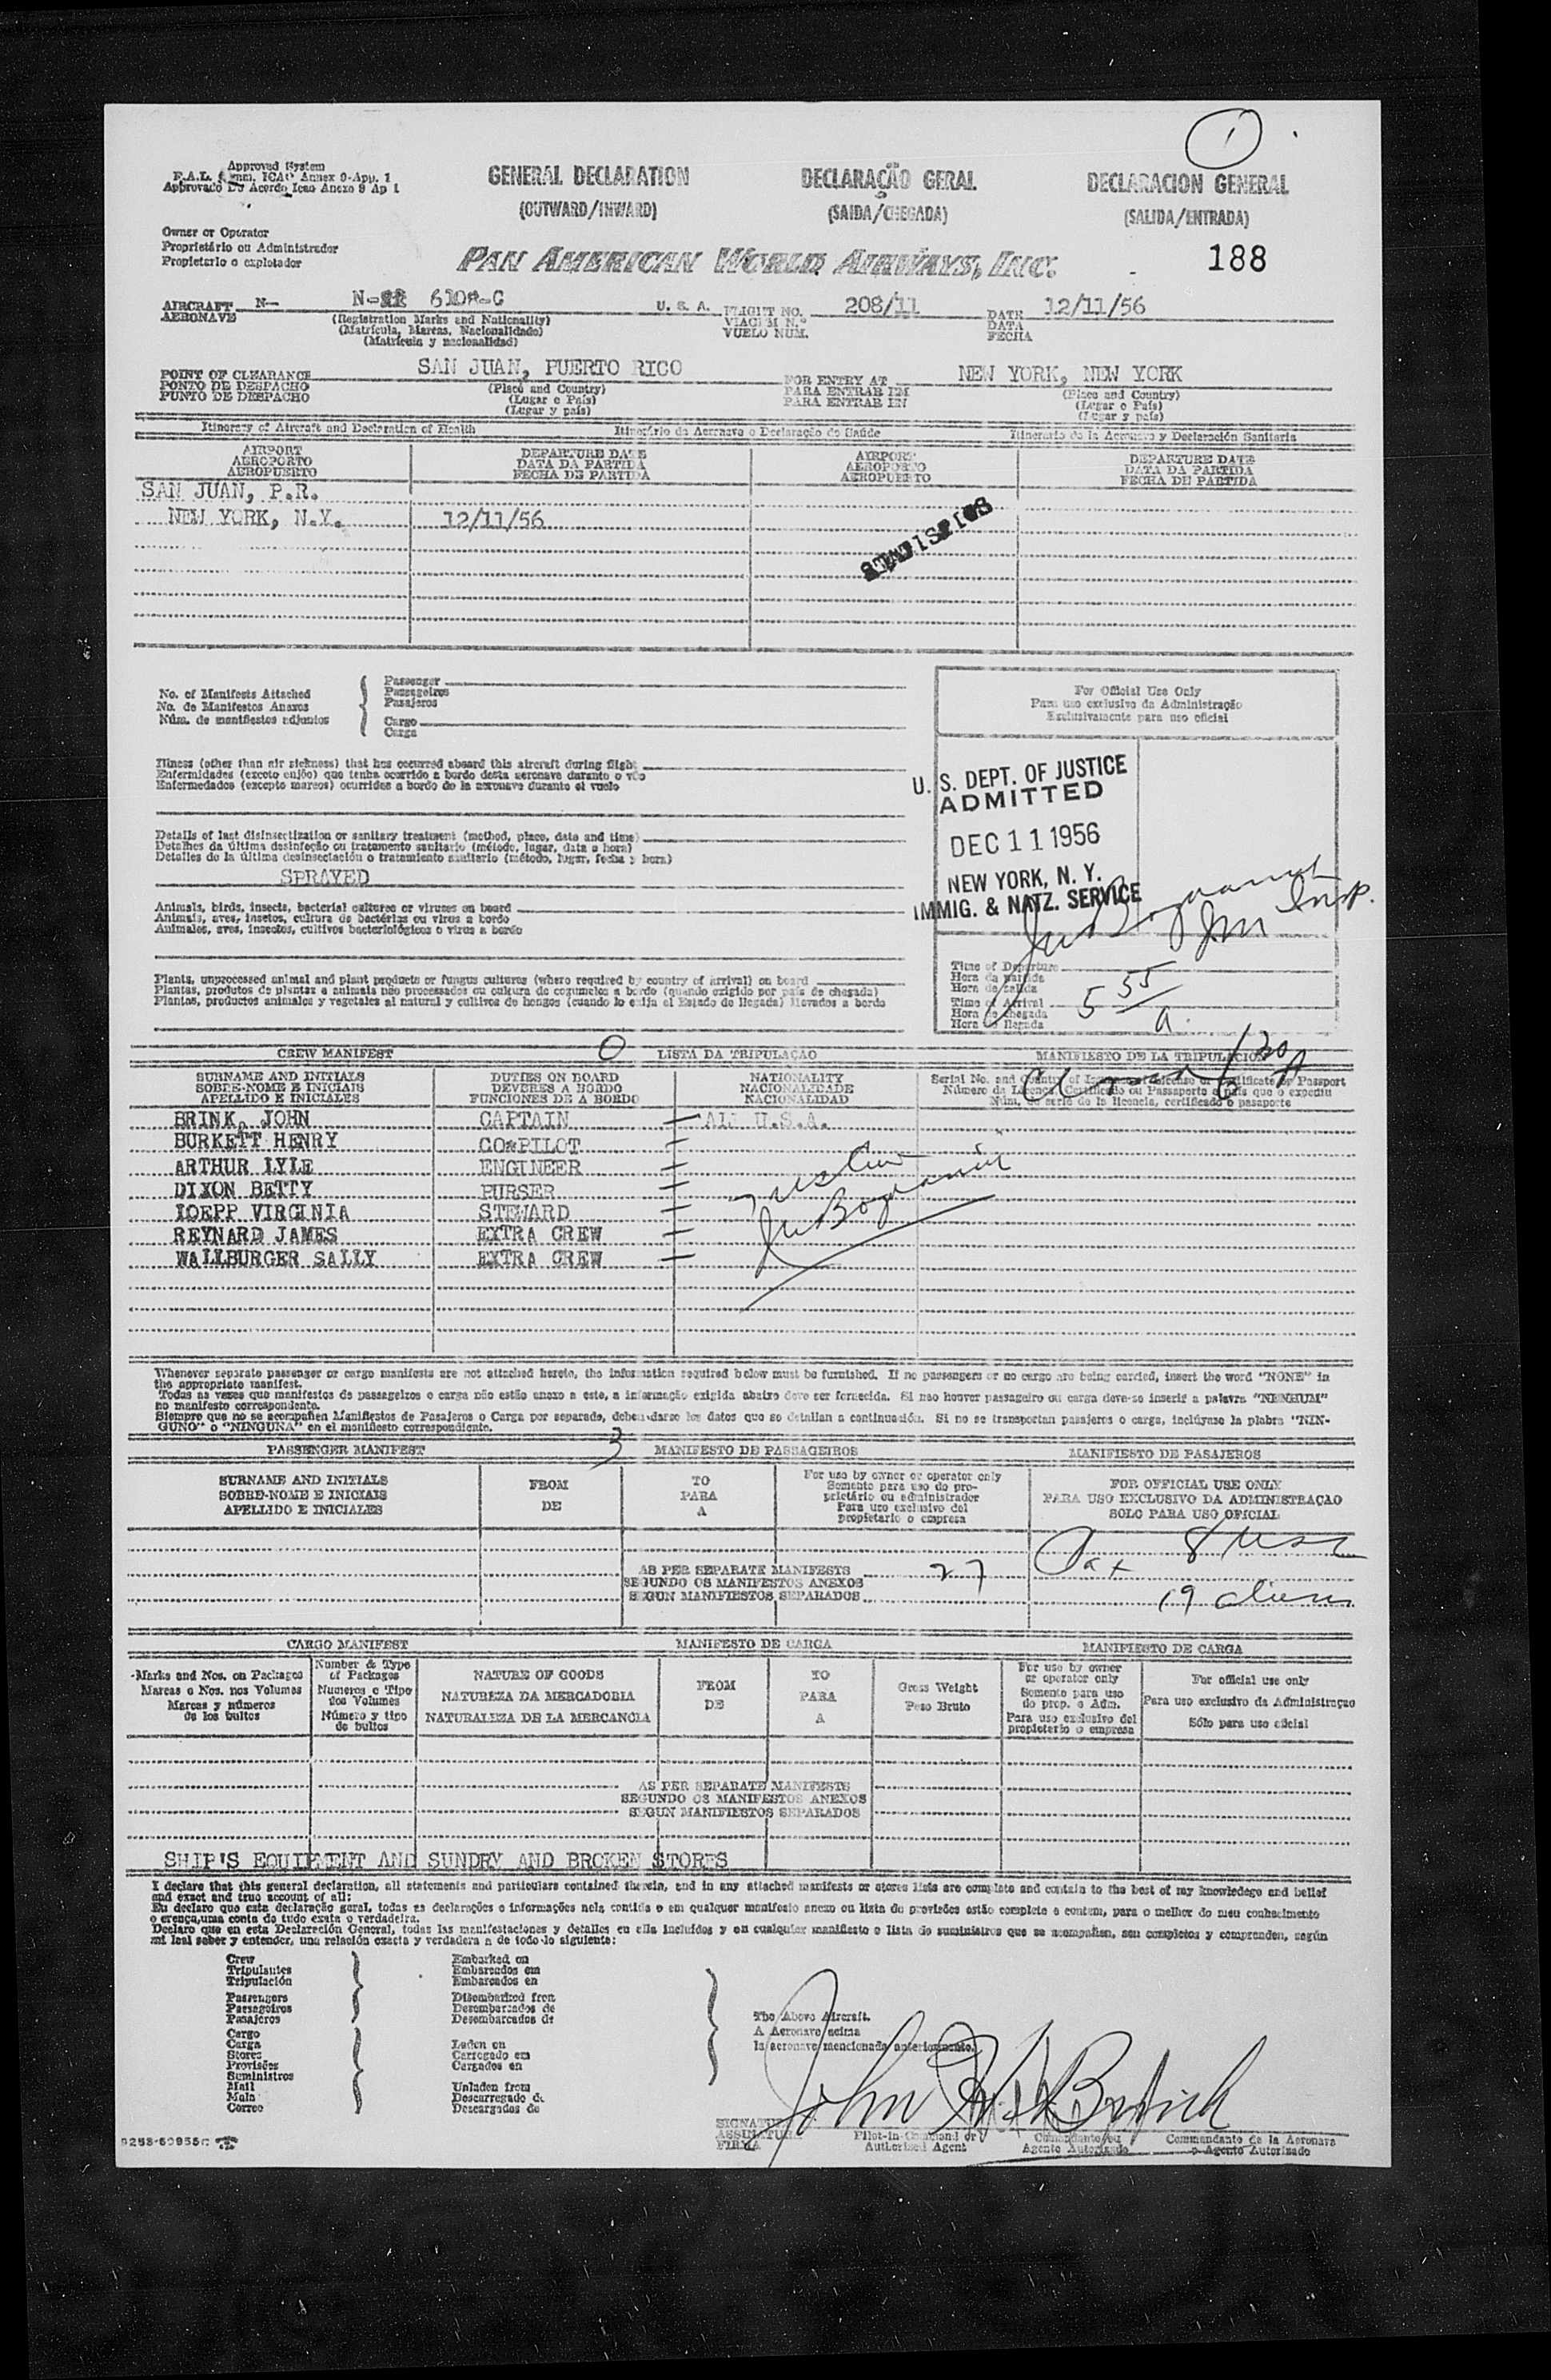 1
Approved System
F.A.L. Comm, ICAO Annex 9-App. 1
Approvado De Acordo Icao Anexo 9 Ap 1
GENERAL DECLARATION DECLARAÇÃO GERAL DECLARACION GENERAL
(OUTWARD/INWARD) (SAIDA/CHEGADA) (SALIDA/ENTRADA)
Owner or Operator
Proprietário ou Administrador
Propietario o explotador
PAN AMERICAN WORLD AIRWAYS, INC.
188
AIRCRAFT N- U. S. A. FLIGHT NO. 208/11 DATE 12/11/56
AERONAVE (Registration Marks and Nationality) VIAGEM N.° DATA
(Matrícula, Marcas, Nacionalidade) VUELO NUM. FECHA
(Matrícula y nacionalidad)
POINT OF CLEARANCE SAN JUAN, PUERTO RICO FOR ENTRY AT NEW YORK, NEW YORK
PONTO DE DESPACHO (Place and Country) PARA ENTRAR EM (Place and Country)
PUNTO DE DESPACHO (Lugar e País) PARA ENTRAR EN (Lugar e País)
(Lugar y país) (Lugar y país)
Itinerary of Aircraft and Declaration of Health Itinerário da Aeronave e Declaração de Saúde Itinerario de la Aeronave y Declaración Sanitaria
AIRPORT DEPARTURE DATE AIRPORT DEPARTURE DATE
AEROPORTO DATA DA PARTIDA AEROPORTO DATA DA PARTIDA
AEROPUERTO FECHA DE PARTIDA AEROPUERTO FECHA DE PARTIDA
SAN JUAN, P.R.
NEW YORK, N.Y. 12/11/56
No. of Manifests Attached Passenger
No. de Manifestos Anexos Passageiros
Núm. de manifiestos adjuntos Pasajeros
Cargo
Carga
For Official Use Only
Para uso exclusivo da Administração
Exclusivamente para uso oficial
Illness (other than air sickness) that has occurred aboard this aircraft during flight
Enfermidades (exceto enjôo) que tenha ocorrido a bordo desta aeronave durante o vôo
Enfermedades (excepto mareos) ocurridas a bordo de la aeronave durante el vuelo
U. S. DEPT. OF JUSTICE
ADMITTED
DEC 11 1956
NEW YORK, N. Y.
IMMIG. & NATZ. SERVICE
Details of last disinsectization or sanitary treatment (method, place, date and time)
Detalhes da última desinfeção ou tratamento sanitario (método, lugar, data e hora)
Detalles de la última desinsectación o tratamiento sanitario (método, lugar, fecha y hora)
SPRAYED
Animals, birds, insects, bacterial cultures or viruses on board
Animais, aves, insetos, cultura de bactérias ou vírus a bordo
Animales, aves, insectos, cultivos bacteriológicos o virus a bordo
Imm Insp.
Plants, unprocessed animal and plant products or fungus cultures (where required by country of arrival) on board
Plantas, produtos de plantas e animais não processados ou cultura de cogumelos a bordo (quando exigido por país de chegada)
Plantas, productos animales y vegetales al natural y cultivos de hongos (cuando lo exija el Estado de llegada) llevados a bordo
Time of Departure
Hora da partida
Hora de salida
Time of Arrival 5 55/A.
Hora de chegada
Hora de llegada
CREW MANIFEST LISTA DA TRIPULAÇAO MANIFIESTO DE LA TRIPULACION
SURNAME AND INITIALS DUTIES ON BOARD NATIONALITY Serial No. and Country of Issue of License or Certificate or Passport
SOBRE-NOME E INICIAIS DEVERES A BORDO NACIONALIDADE Número da Licença, Certificado ou Passaporte e país que o expediu
APELLIDO E INICIALES FUNCIONES DE A BORDO NACIONALIDAD Núm. de serie de la licencia, certificado o pasaporte
BRINK, JOHN CAPTAIN All U.S.A.
BURKETT HENRY CO*PILOT
ARTHUR LYLE ENGINEER
DIXON BETTY PURSER
IOEPP VIRGINIA STEWARD
REYNARD JAMES EXTRA CREW
WALLBURGER SALLY EXTRA CREW
Whenever separate passenger or cargo manifests are not attached hereto, the information required below must be furnished. If no passengers or no cargo are being carried, insert the word "NONE" in
the appropriate manifest.
Todas as vezes que manifestos de passageiros e carga não estão anexo a este, a informação exigida abaixo deve ser fornecida. Si nao houver passageiro ou carga deve-se inserir a palavra "NENHUM"
no manifesto correspondente.
Siempre que no se acompañen Manifiestos de Pasajeros o Carga por separado, deben darse los datos que se detallan a continuación. Si no se transportan pasajeros o carga, inclúyase la plabra "NIN-
GUNO" o "NINGUNA" en el manifiesto correspondiente.
3
PASSENGER MANIFEST MANIFESTO DE PASSAGEIROS MANIFIESTO DE PASAJEROS
SURNAME AND INITIALS FROM TO For use by owner or operator only FOR OFFICIAL USE ONLY
SOBRE-NOME E INICIAIS DE PARA Somente para uso do pro-prietário ou administrador PARA USO EXCLUSIVO DA ADMINISTRAÇAO
APELLIDO E INICIALES A Para uso exclusivo del propietario o empresa SOLO PARA USO OFICIAL
AS PER SEPARATE MANIFESTS 27 Pax 8 USC
SEGUNDO OS MANIFESTOS ANEXOS
SEGUN MANIFIESTOS SEPARADOS 19 aliens
CARGO MANIFEST MANIFESTO DE CARGA MANIFIESTO DE CARGA
Marks and Nos. on Packages Number & Type of Packages NATURE OF GOODS FROM TO Gross Weight For use by owner or operator only For official use only
Marcas e Nos. nos Volumes Numeros e Tipo dos Volumes NATUREZA DA MERCADORIA DE PARA Peso Bruto Somente para uso do prop. e Adm. Para uso exclusivo da Administraçao
Marcas y números de los bultos Número y tipo de bultos NATURALEZA DE LA MERCANCIA A Para uso exclusivo del propietario o empresa Sólo para uso oficial
AS PER SEPARATE MANIFESTS
SEGUNDO OS MANIFESTOS ANEXOS
SEGUN MANIFIESTOS SEPARADOS
SHIP'S EQUIPMENT AND SUNDRY AND BROKEN STORES
I declare that this general declaration, all statements and particulars contained therein, and in any attached manifests or stores lists are complete and contain to the best of my knowledege and belief
and exact and true account of all:
Eu declaro que esta declaração geral, todas as declarações e informações nela contida e em qualquer manifesto anexo ou lista de provisões estão completo e contem, para o melhor do meu conhecimento
e crença, uma conta de tudo exata e verdadeira.
Declaro que en esta Declareción General, todas las manifestaciones y detalles en ella incluidos y en cualquier manifiesto o lista de suministros que se acompañen, sen completos y comprenden, según
mi leal saber y entender, una relación exacta y verdadera a de todo lo siguiente:
Crew Embarked on
Tripulantes Embarcados em
Tripulación Embarcados en
Passengers Disembarked from
Passageiros Desembarcados de
Pasajeros Desembarcados de
The Above Aircraft.
A Aeronave acima
la aeronave mencionada anteriormente.
Cargo
Carga Laden on
Stores Carregado em
Provisões Cargados en
Suministros
Mail Unladen from
Mala Descarregado de
Correo Descargados de
SIGNATURE
ASSINATURA
FIRMA
Pilot-in-Command or Comandante ou Commandante de la Aeronave
Authorized Agent Agente Autorizado o Agente Autorizado